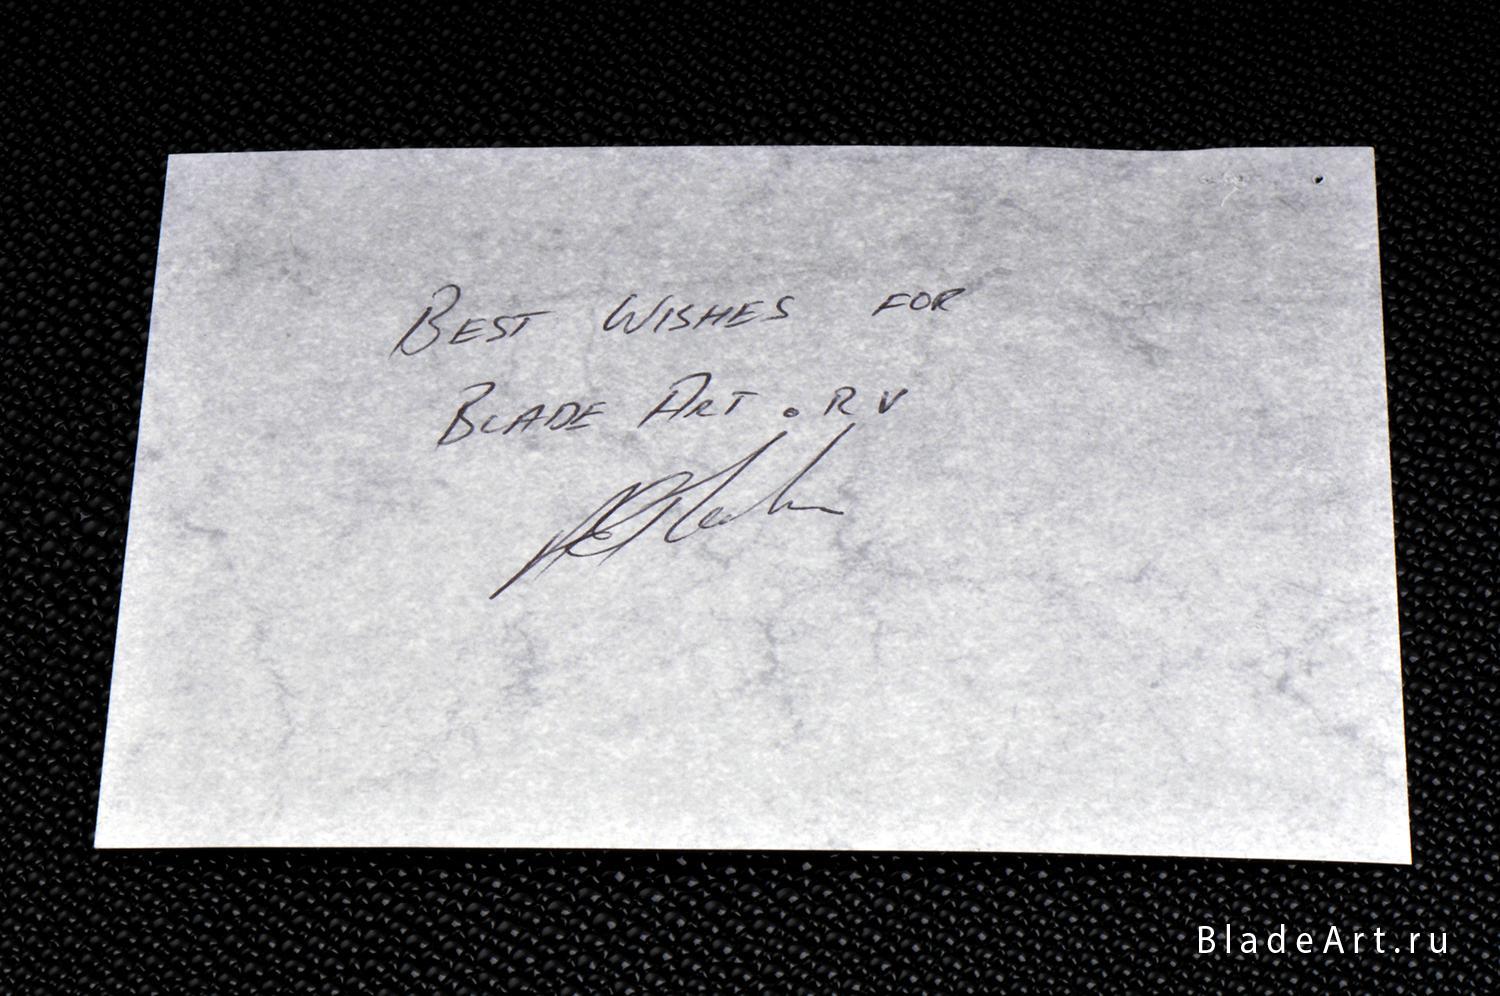 BEST WISHES FOR
BLADE ART.RV
BladeArt.ru